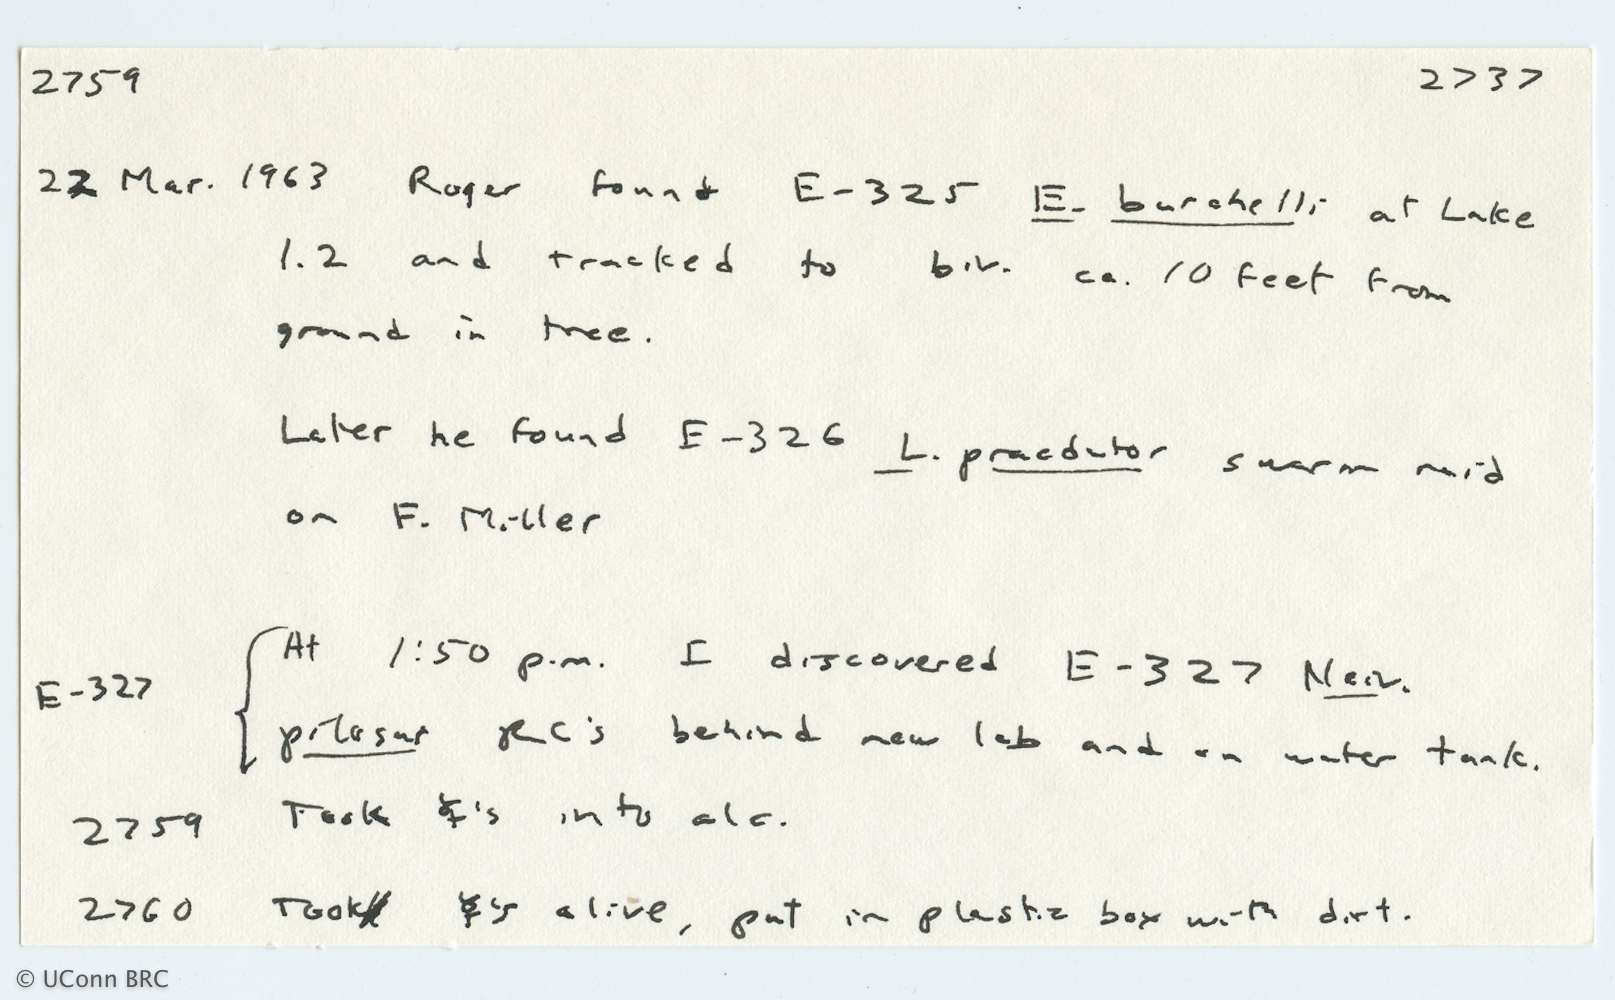 2759 2737
22 Mar. 1963 Roger found E-325 E. burchelli at Lake
1.2 and tracked to biv. ca. 10 feet from
ground in tree.
Later he found E-326 L. praedator swarm raid
on F. Miller
At 1:50 p.m. I discovered E-327 Neiv.
E-327
pilosus RC's behind new lab and on water tank.
2759 Took ☿'s into alc.
2760 Took ☿'s alive, put in plastic box with dirt.
© UConn BRC